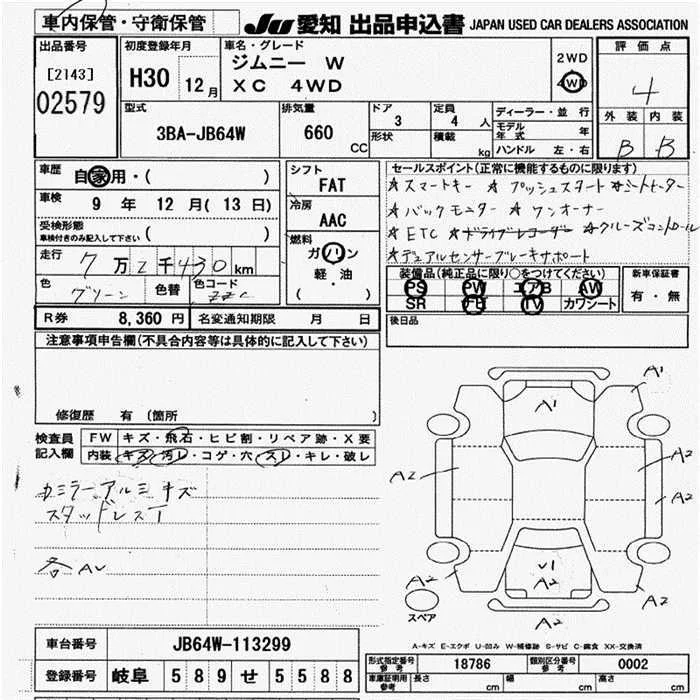 車内保管・守衛保管
JU 愛知 出品申込書 JAPAN USED CAR DEALERS ASSOCIATION
出品番号
[2143]
02579
初度登録年月
H30 12月
車名・グレード
ジムニー W
XC 4WD
2WD
4WD
評価点
4
外装 内装
B B
型式
3BA-JB64W
排気量
660 CC
ドア 3
形状
定員 4 人
積載 kg
ディーラー・並行
モデル年式 年
ハンドル 左・右
車歴
自家用・( )
車検
9 年 12 月(13 日)
受検形態
車検付きのみ記入して下さい ( )
走行
7万2千430km
色 グリーン
色替
色コード ZZC
シフト
FAT
冷房
AAC
燃料
ガソリン
軽・油
( )
セールスポイント(正常に機能するものに限ります)
★スマートキー ★プッシュスタート ★シートヒーター
★バックモニター ★ワンオーナー
★ETC ★ドライブレコーダー ★クルーズコントロール
★デュアルセンサーブレーキサポート
装備品(純正品に限り○をつけてください)
PS PW エアB AW
SR ナビ TV カワシート
新車保証書
有・無
後日品
R券 8,360 円 名変通知期限 月 日
注意事項申告欄(不具合内容等は具体的に記入して下さい)
修復歴 有 (箇所 )
検査員記入欄
FW キズ・飛石・ヒビ割・リペア跡・X要
内装 キズ・汚レ・コゲ・穴・スレ・キレ・破レ
カミラー、アルミキズ
スタッドレスT
各AU
A1
A1
A2
A2
A2
U1
A2
A2
A2
A2
スペア
A-キズ E-エクボ U-凹み W-補修跡 S-サビ C-腐食 XX-交換済
車台番号 JB64W-113299
登録番号 岐阜 589 せ 5588
形式指定番号 参考 18786 類別区分番号 参考 0002
車庫証明用 参考 長さ cm 幅 cm 高さ cm